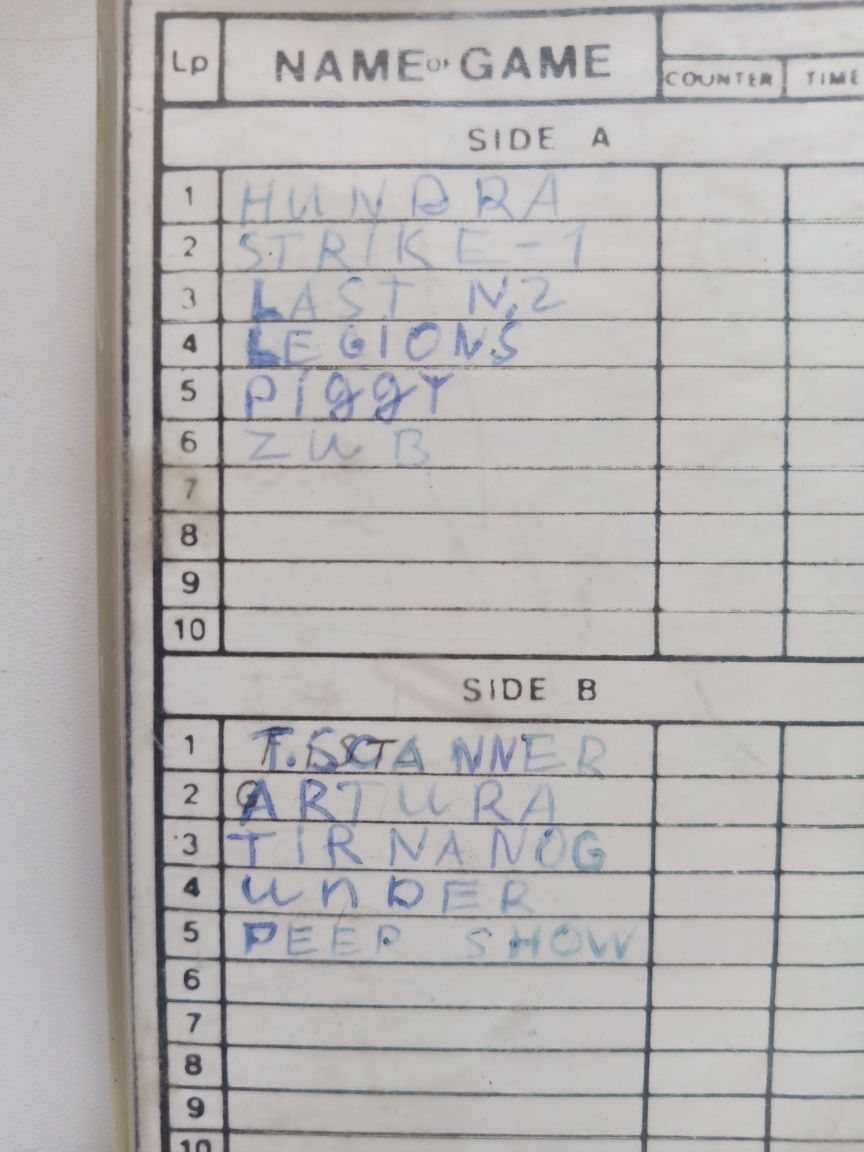 Lp NAME OF GAME
COUNTER TIME
SIDE A
1 HUNDRA
2 STRIKE-1
3 LAST N.2
4 LEGIONS
5 PIGGY
6 ZUB
7
8
9
10
SIDE B
1 T.SCANNER
2 ARTURA
3 TIRNANOG
4 UNDER
5 PEEP SHOW
6
7
8
9
10